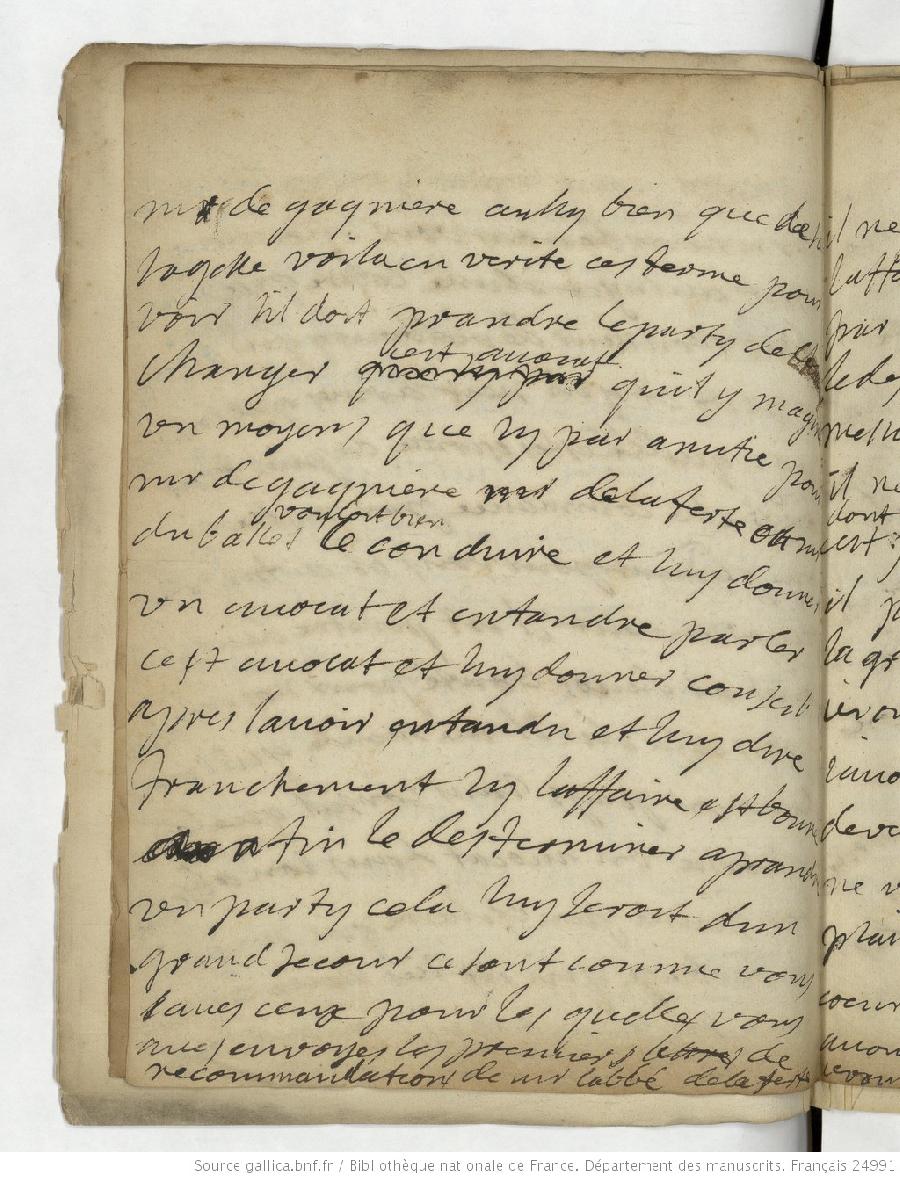 mr de gagniere aussy bien que de
voila en verite ces terme pour
voir sil doit prandre le party de
changer cest avocat quil y
un moyens que sy par amitie pour
mr de gagniere mr de la ferte ou mr
du bakes vouloit bien le conduire et luy donner
un avocat et entandre parler
cest avocat et luy donner conseil
apres lavoir entandu et luy dire
franchement sy laffaire est bonne
afin le desterminer a prandre
un party cela luy seroit dun
grand secour ce sont comme vous
saves ceux pour les quelles vous
aves envoyes les premiers letres de
recommandation de mr labbé de la ferte
il ne
laffa
par
il ne
dont
il p
la gr
ne v
plai
coeur
Source gallica.bnf.fr / Bibliothèque nationale de France. Département des manuscrits. Français 24991